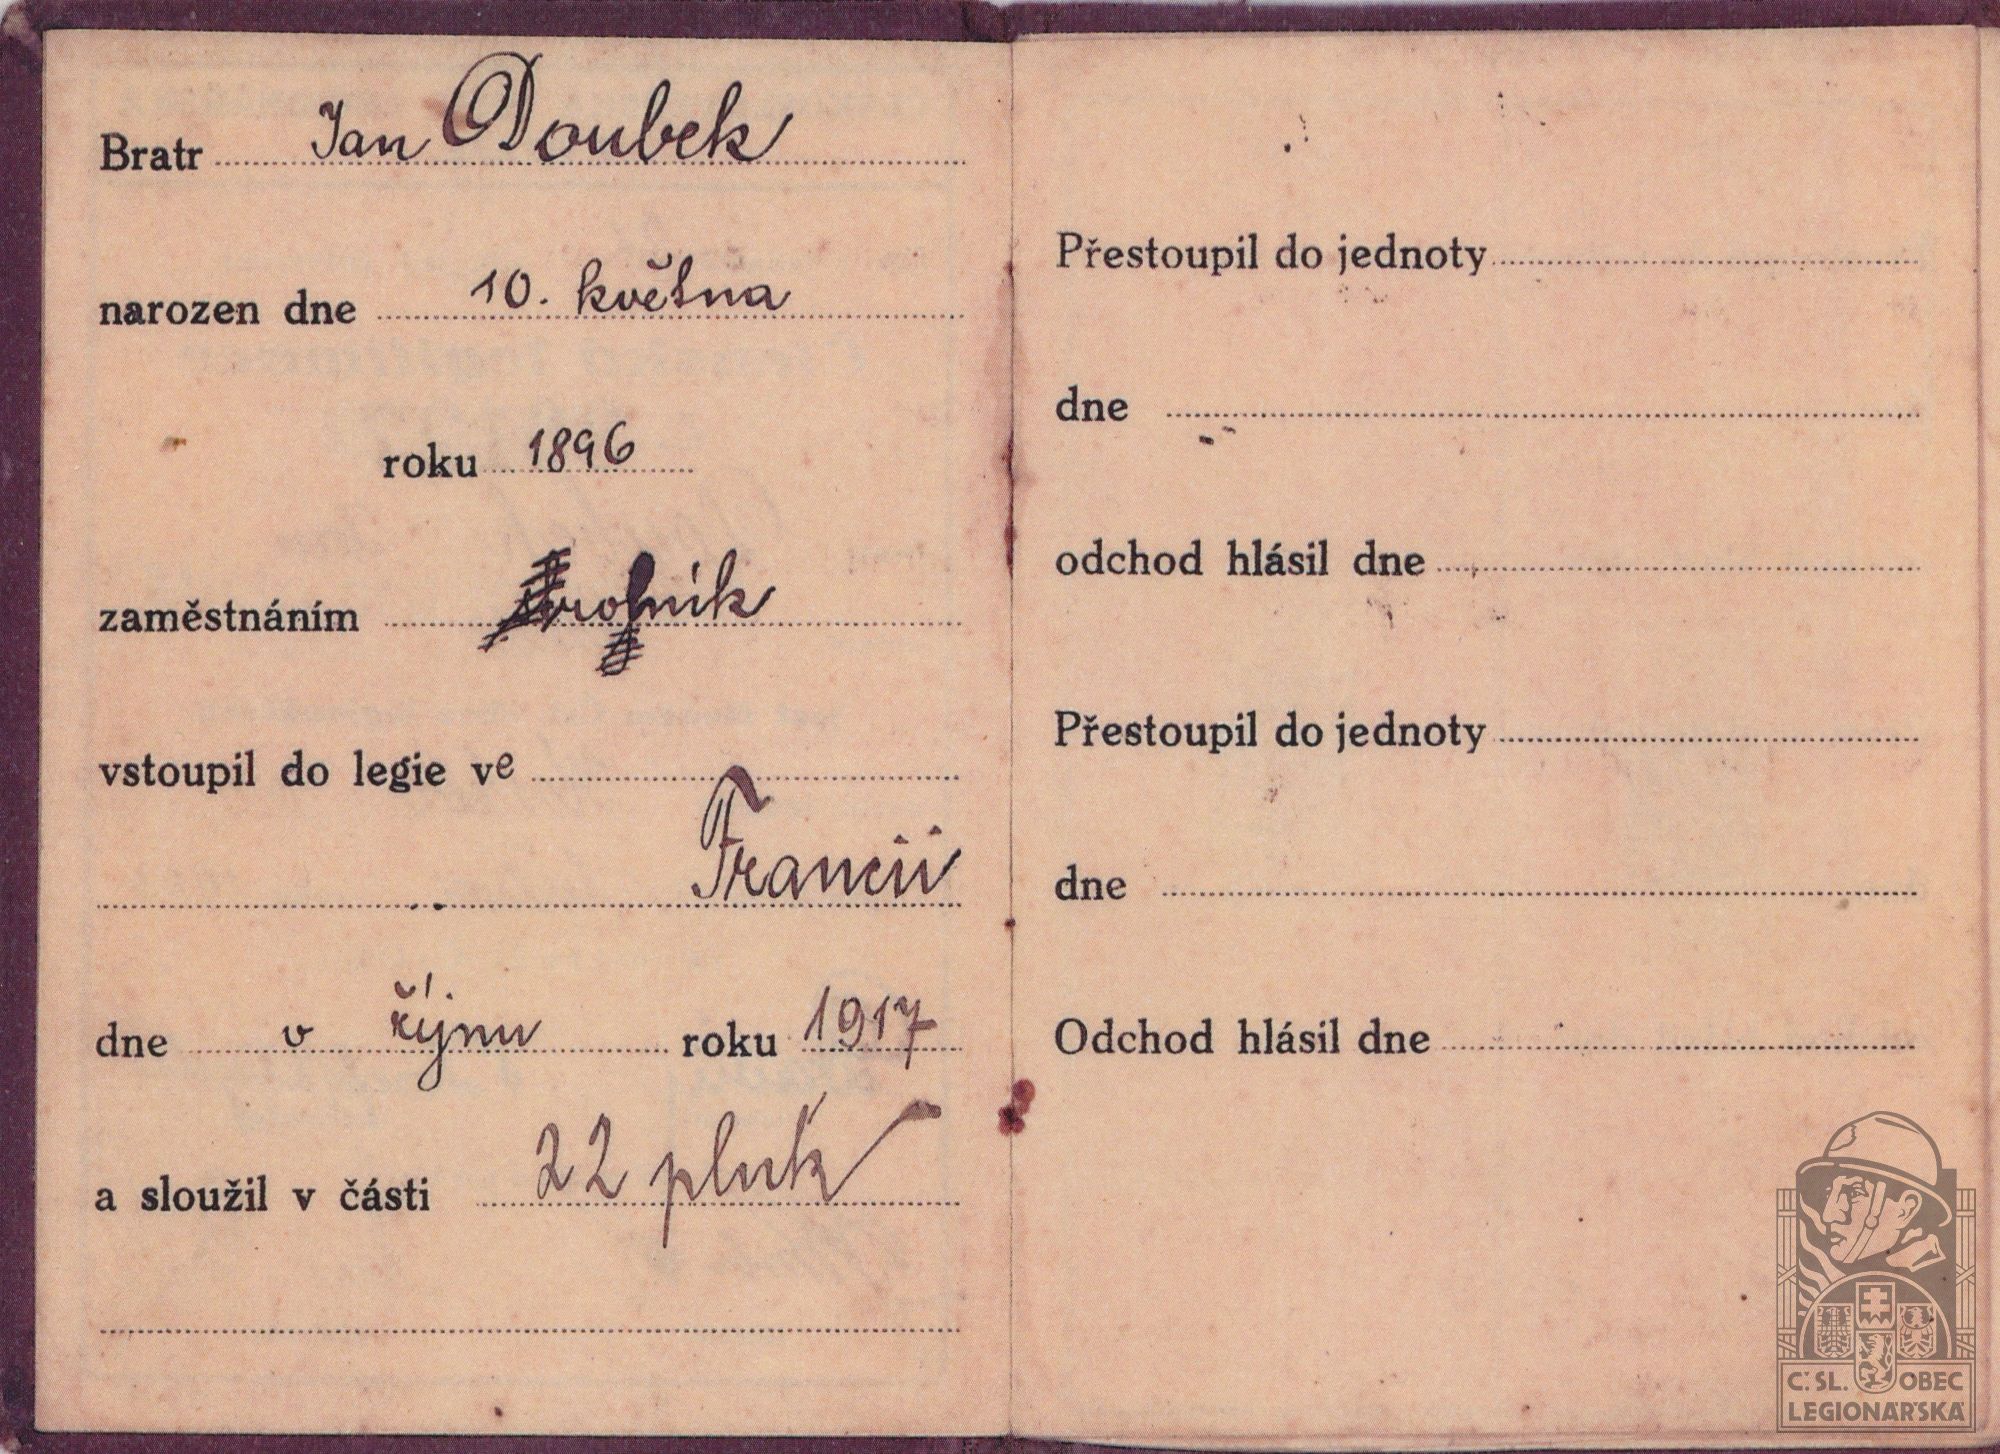 Bratr Jan Doubek
narozen dne 10. května
roku 1896
zaměstnáním rolník
vstoupil do legie ve
Francii
dne v říjnu roku 1917
a sloužil v části 22 pluk
Přestoupil do jednoty
dne
odchod hlásil dne
Přestoupil do jednoty
dne
Odchod hlásil dne
Č. SL. OBEC
LEGIONÁŘSKÁ